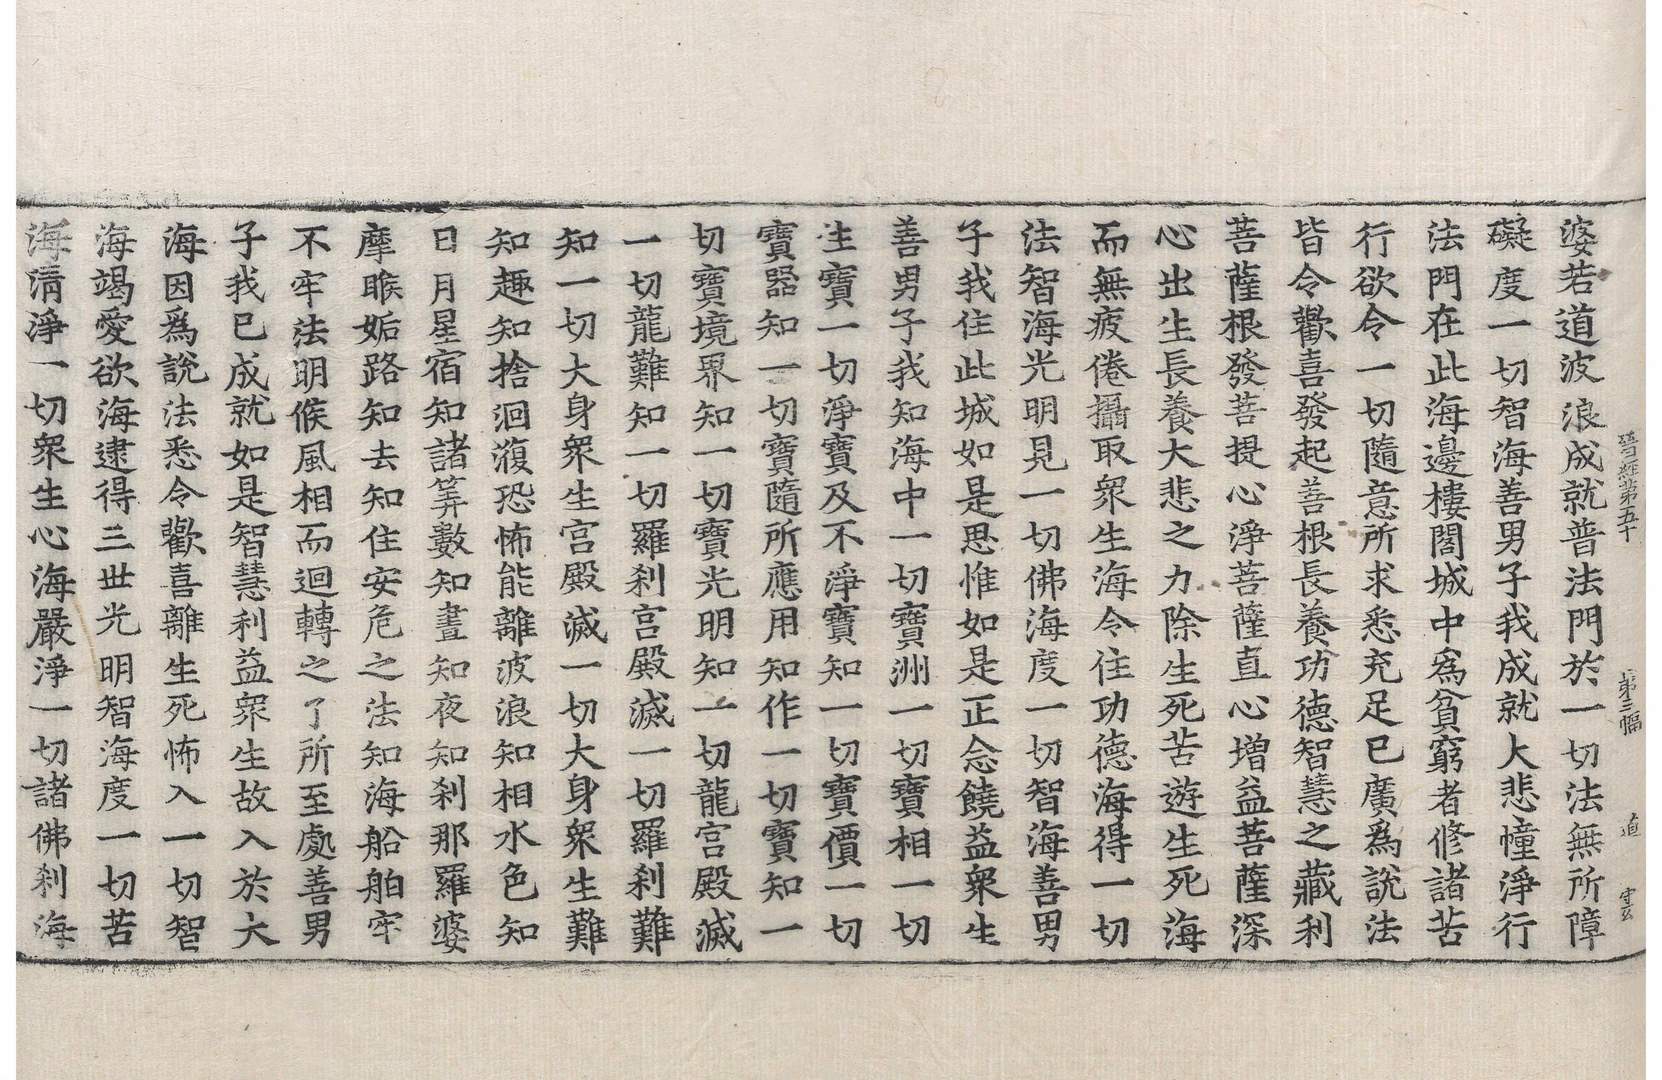 晉經第五十 第三幅 道 雲
婆若道波浪成就普法門於一切法無所障
礙度一切智海善男子我成就大悲幢淨行
法門在此海邊樓閣城中爲貧窮者修諸苦
行欲令一切隨意所求悉充足已廣爲說法
皆令歡喜發起善根長養功德智慧之藏利
菩薩根發菩提心淨菩薩直心增益菩薩深
心出生長養大悲之力除生死苦遊生死海
而無疲倦攝取衆生海令住功德海得一切
法智海光明見一切佛海度一切智海善男
子我住此城如是思惟如是正念饒益衆生
善男子我知海中一切寶洲一切寶相一切
生寶一切淨寶及不淨寶知一切寶價一切
寶器知一切寶隨所應用知作一切寶知一
切寶境界知一切寶光明知一切龍宮殿滅
一切龍難知一切羅刹宮殿滅一切羅刹難
知一切大身衆生宮殿滅一切大身衆生難
知趣知捨洄澓恐怖能離波浪知相水色知
日月星宿知諸筭數知晝知夜知刹那羅婆
摩睺姤路知去知住安危之法知海船舶牢
不牢法明候風相而迴轉之了所至處善男
子我已成就如是智慧利益衆生故入於大
海因爲說法悉令歡喜離生死怖入一切智
海竭愛欲海逮得三世光明智海度一切苦
海清淨一切衆生心海嚴淨一切諸佛刹海